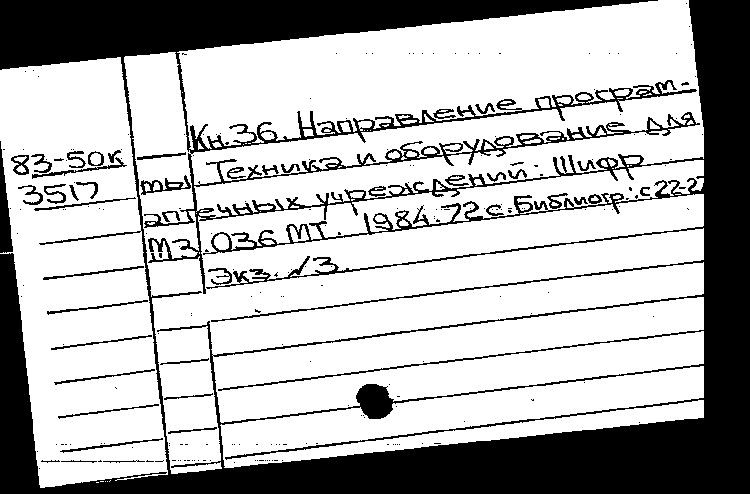 Кн.36. Направление програм-
83-50к
3517
мы. Техника и оборудование для
аптечных учреждений: Шифр
МЗ.036 МТ. 1984.72с.Библиогр.:с22-27
Экз. √3.